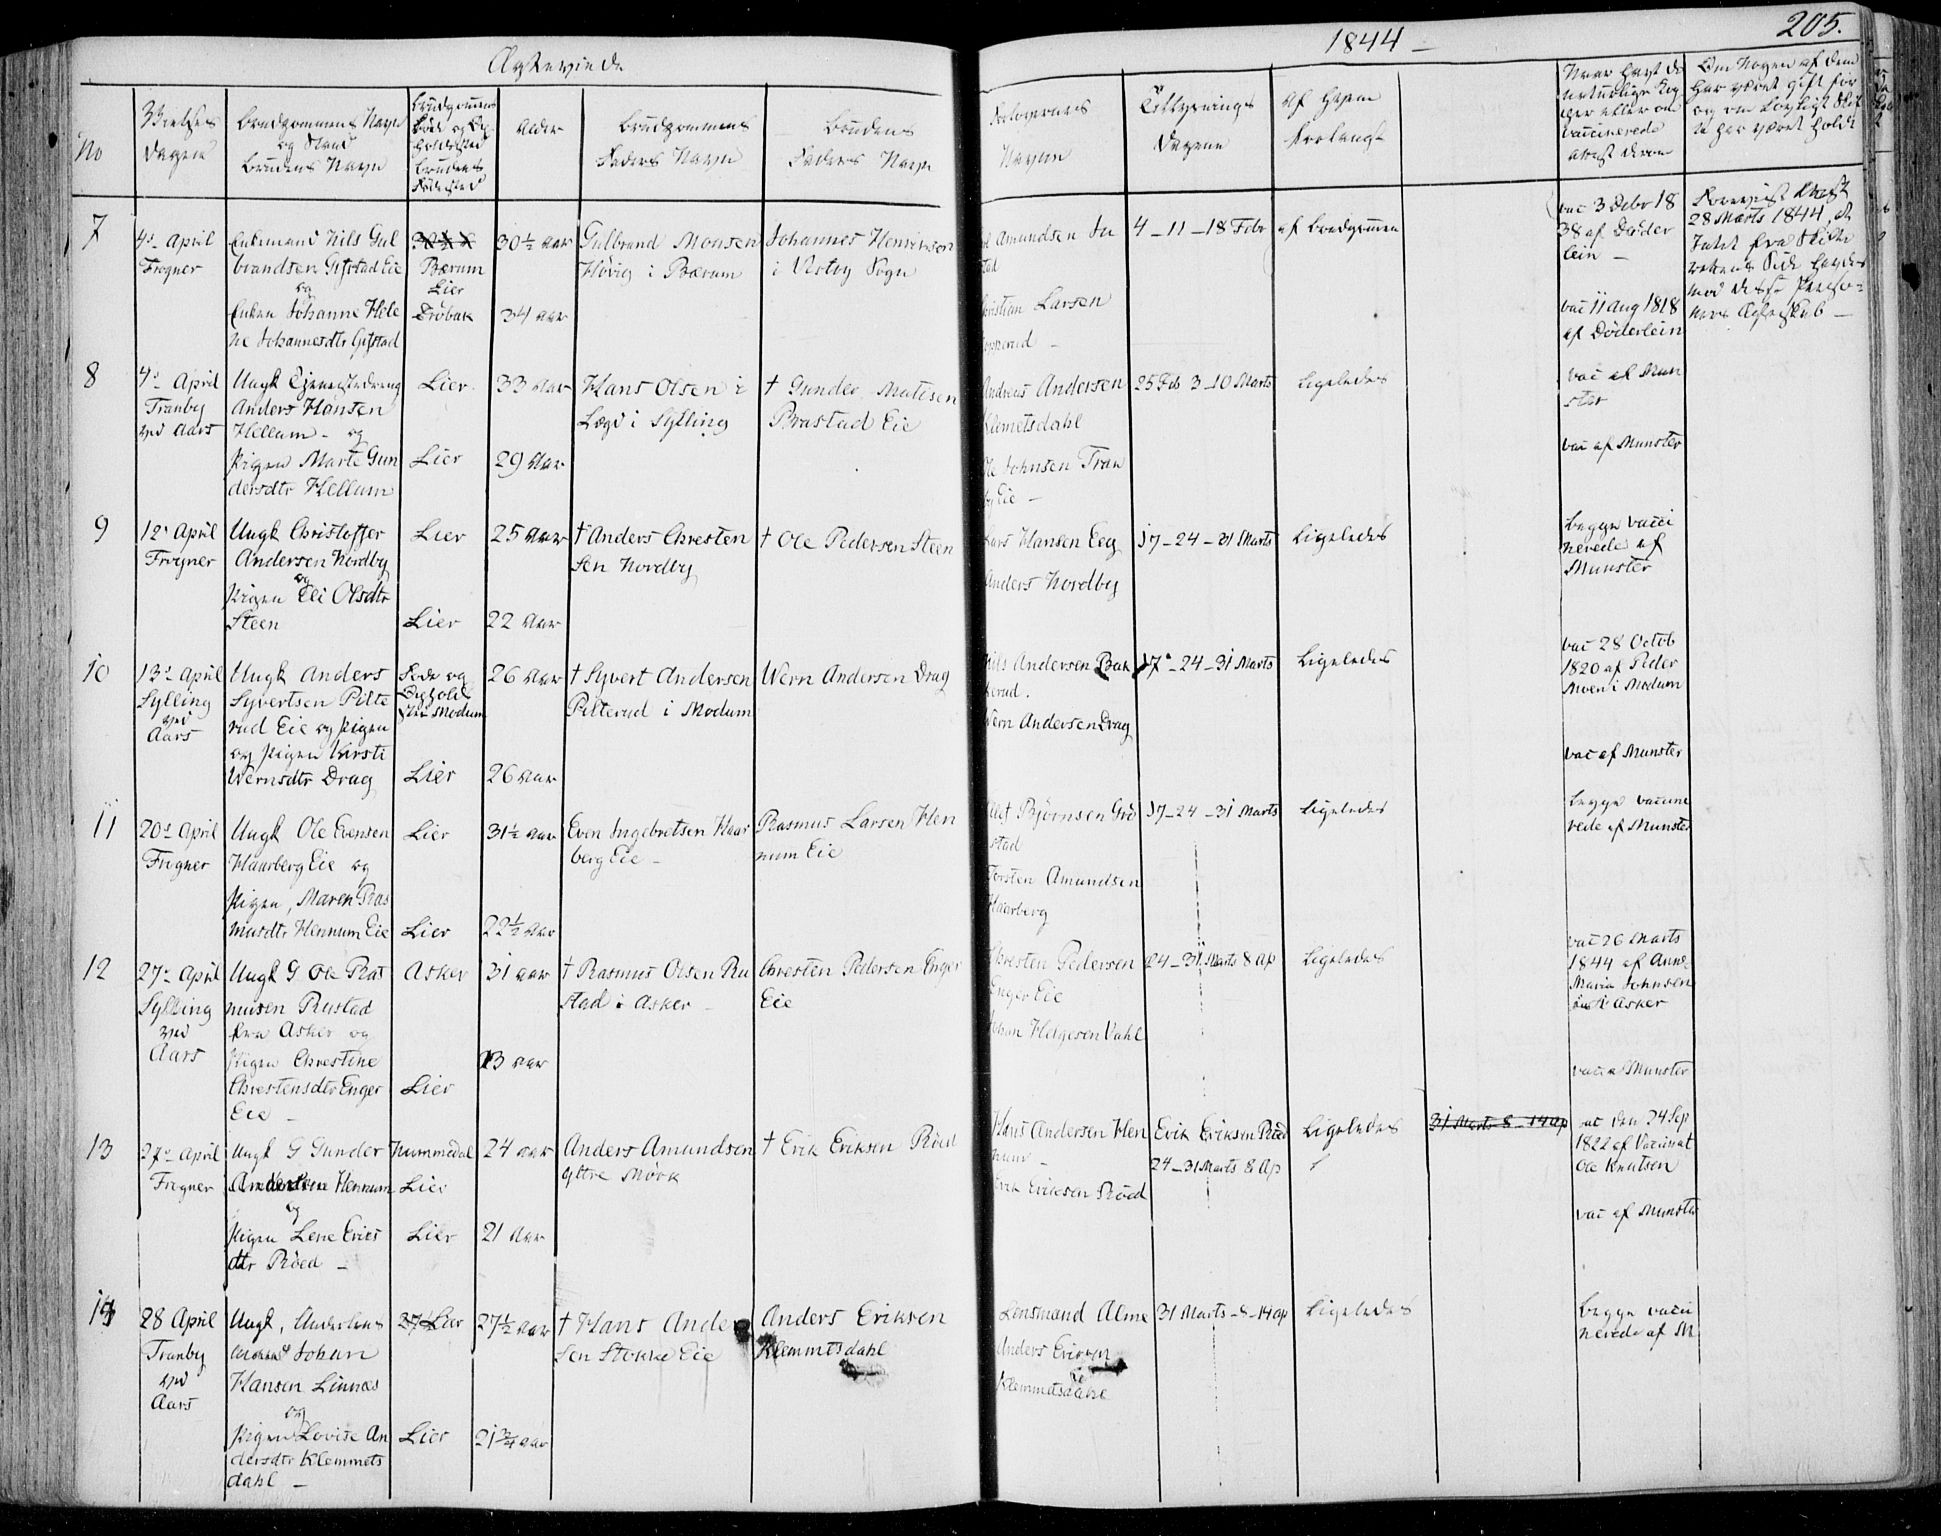 Ægteviede
1844 –
205.
No
Vielses
Dagene
Brudgommens Navn
og Stand
Brudens Navn
Brudgommens
Føde og Op-
holdssted
Brudens
Fødested
Alder
Brudgommens
Faders Navn
Brudens
Faders Navn
Forlovernes
Navne
Tillysnings
Dagene
Af hvem
forlangt
Naar havt de
naturlige Kop
per eller ere
vaccinerede
Attest derom
Om Nogen af dem
har været gift før
og om lovligt Skif
te har været holdt
7
4de April
Frogner
Enkemand Nils Gul
brandsen Gifstad Eie
og
Enken Johanne Hele
ne Johannesdtr Gifstad
Bærum
Lier
Drøbak
30½ aar
34 aar
Gulbrand Monsen
Høvig i Bærum
Johannes Henriksen
i Vestby Sogn
Amundsen
stad
Christian Larsen
4 – 11 – 18 Febr
af Brudgommen
vac 3 Debr 18
38 af Døder
lein –
vac 11 Aug 1818
af Døderlein
Foreviist Attest
28 Marts 1844, at
Intet fra Skifte
rettens Side haves
mod disse Perso-
ners Ægteskab –
8
4de April
Tranby
ved Aars
Ungk Tjenestedreng
Anders Hansen
Hellum – og
Pigen Marte Gun
dersdtr Hellum
Lier
Lier
33 Aar
29 Aar
Hans Olsen i
Lægd i Sylling
† Gunder Matisen
Brastad Eie
Andreas Andersen
Klemetsdahl
Ole Johnsen Tran
by Eie –
25 Feb 3 – 10 Marts
Ligeledes
vac af Mun
ster
vac af Munster
9
12te April
Frogner
Ungk Christoffer
Andersen Nordby
og
Pigen Eli Olsdtr
Steen
Lier
Lier
25 Aar
22 Aar
† Anders Chresten
sen Nordby
† Ole Pedersen Steen
Lars Hansen Eeg
Anders Nordby
17 – 24 – 31 Marts
Ligeledes
Begge vacci
nerede af
Munster
10
13de April
Sylling
ved
Aars
Ungk Anders
Syvertsen Pilte
rud Eie og Pigen
og Pigen Kirsti
Wernsdtr Drag
Føde og
Ophold
sted Modum
Lier
26 Aar
26 Aar
† Syvert Andersen
Pilterud i Modum
Wern Andersen Drag
Nils Andersen Bak
kerud.
Wern Andersen Drag
17 – 24 – 31 Marts
Ligeledes
vac 28 Octob
1820 af Peder
Moen i Modum
vac af Munster
11
20de April
Frogner
Ungk Ole Evensen
Haarberg Eie og
Pigen, Maren Ras
musdtr Hennum Eie
Lier
Lier
31½ aar
22½ Aar
Even Ingebretsen Haar
berg Eie –
Rasmus Larsen Hen
num Eie
Bjørnsen
stad
Torsten Amundsen
Haarberg
17 – 24 – 31 Marts
Ligeledes
Begge vaccine
rede af Munster
12
27de April
Sylling
ved
Aars
Ungk G Ole Ras
musen Rustad
fra Asker og
Pigen Chrestine
Chrestensdtr Enger
Eie –
Asker
Lier
31 aar
23 aar
† Rasmus Olsen Ru
stad i Asker –
Chresten Pedersen Enger
Eie
Chresten Pedersen
Enger Eie
Johan Helgesen Vahl
24 – 31 Marts 8 Ap
Ligeledes
vac 26 Marts
1844 af Anne
Maria Johnsen
i Asker
vac a Munster
13
27de April
Frogner
Ungk G Gunder
Andersen Hennum
og
Pigen Lene Erics
dtr Røed –
Nummedal
Lier
Lier
24 aar
21 Aar
Anders Amundsen
ytre Mørk
† Erik Eriksen Røed
Hans Andersen Hen
num –
Erik Eriksen Røed
Erik Eriksen Røed
24 – 31 Marts 8 Ap
Ligeledes
31 Marts 8 – 14 Ap
vac den 24 Sep
1822 af Vaccinat
Ole Knutsen
vac af Munster
14
28 April
Tranby
ved
Aars
Ungk, Underlens
mand Johan
Hansen Linnæs
og
Pigen Lovise An
dersdtr Klemmets
dahl –
Lier
Lier
27½ aar
21¾ aar
† Hans Ander
sen Stokke Eie
Anders Eriksen
Klemmetsdahl
Lensmand Alme
Anders Eriksen
Klemmetsdahl
31 Marts – 8 – 14 Ap
Ligeledes
Begge vacci
nerede af M